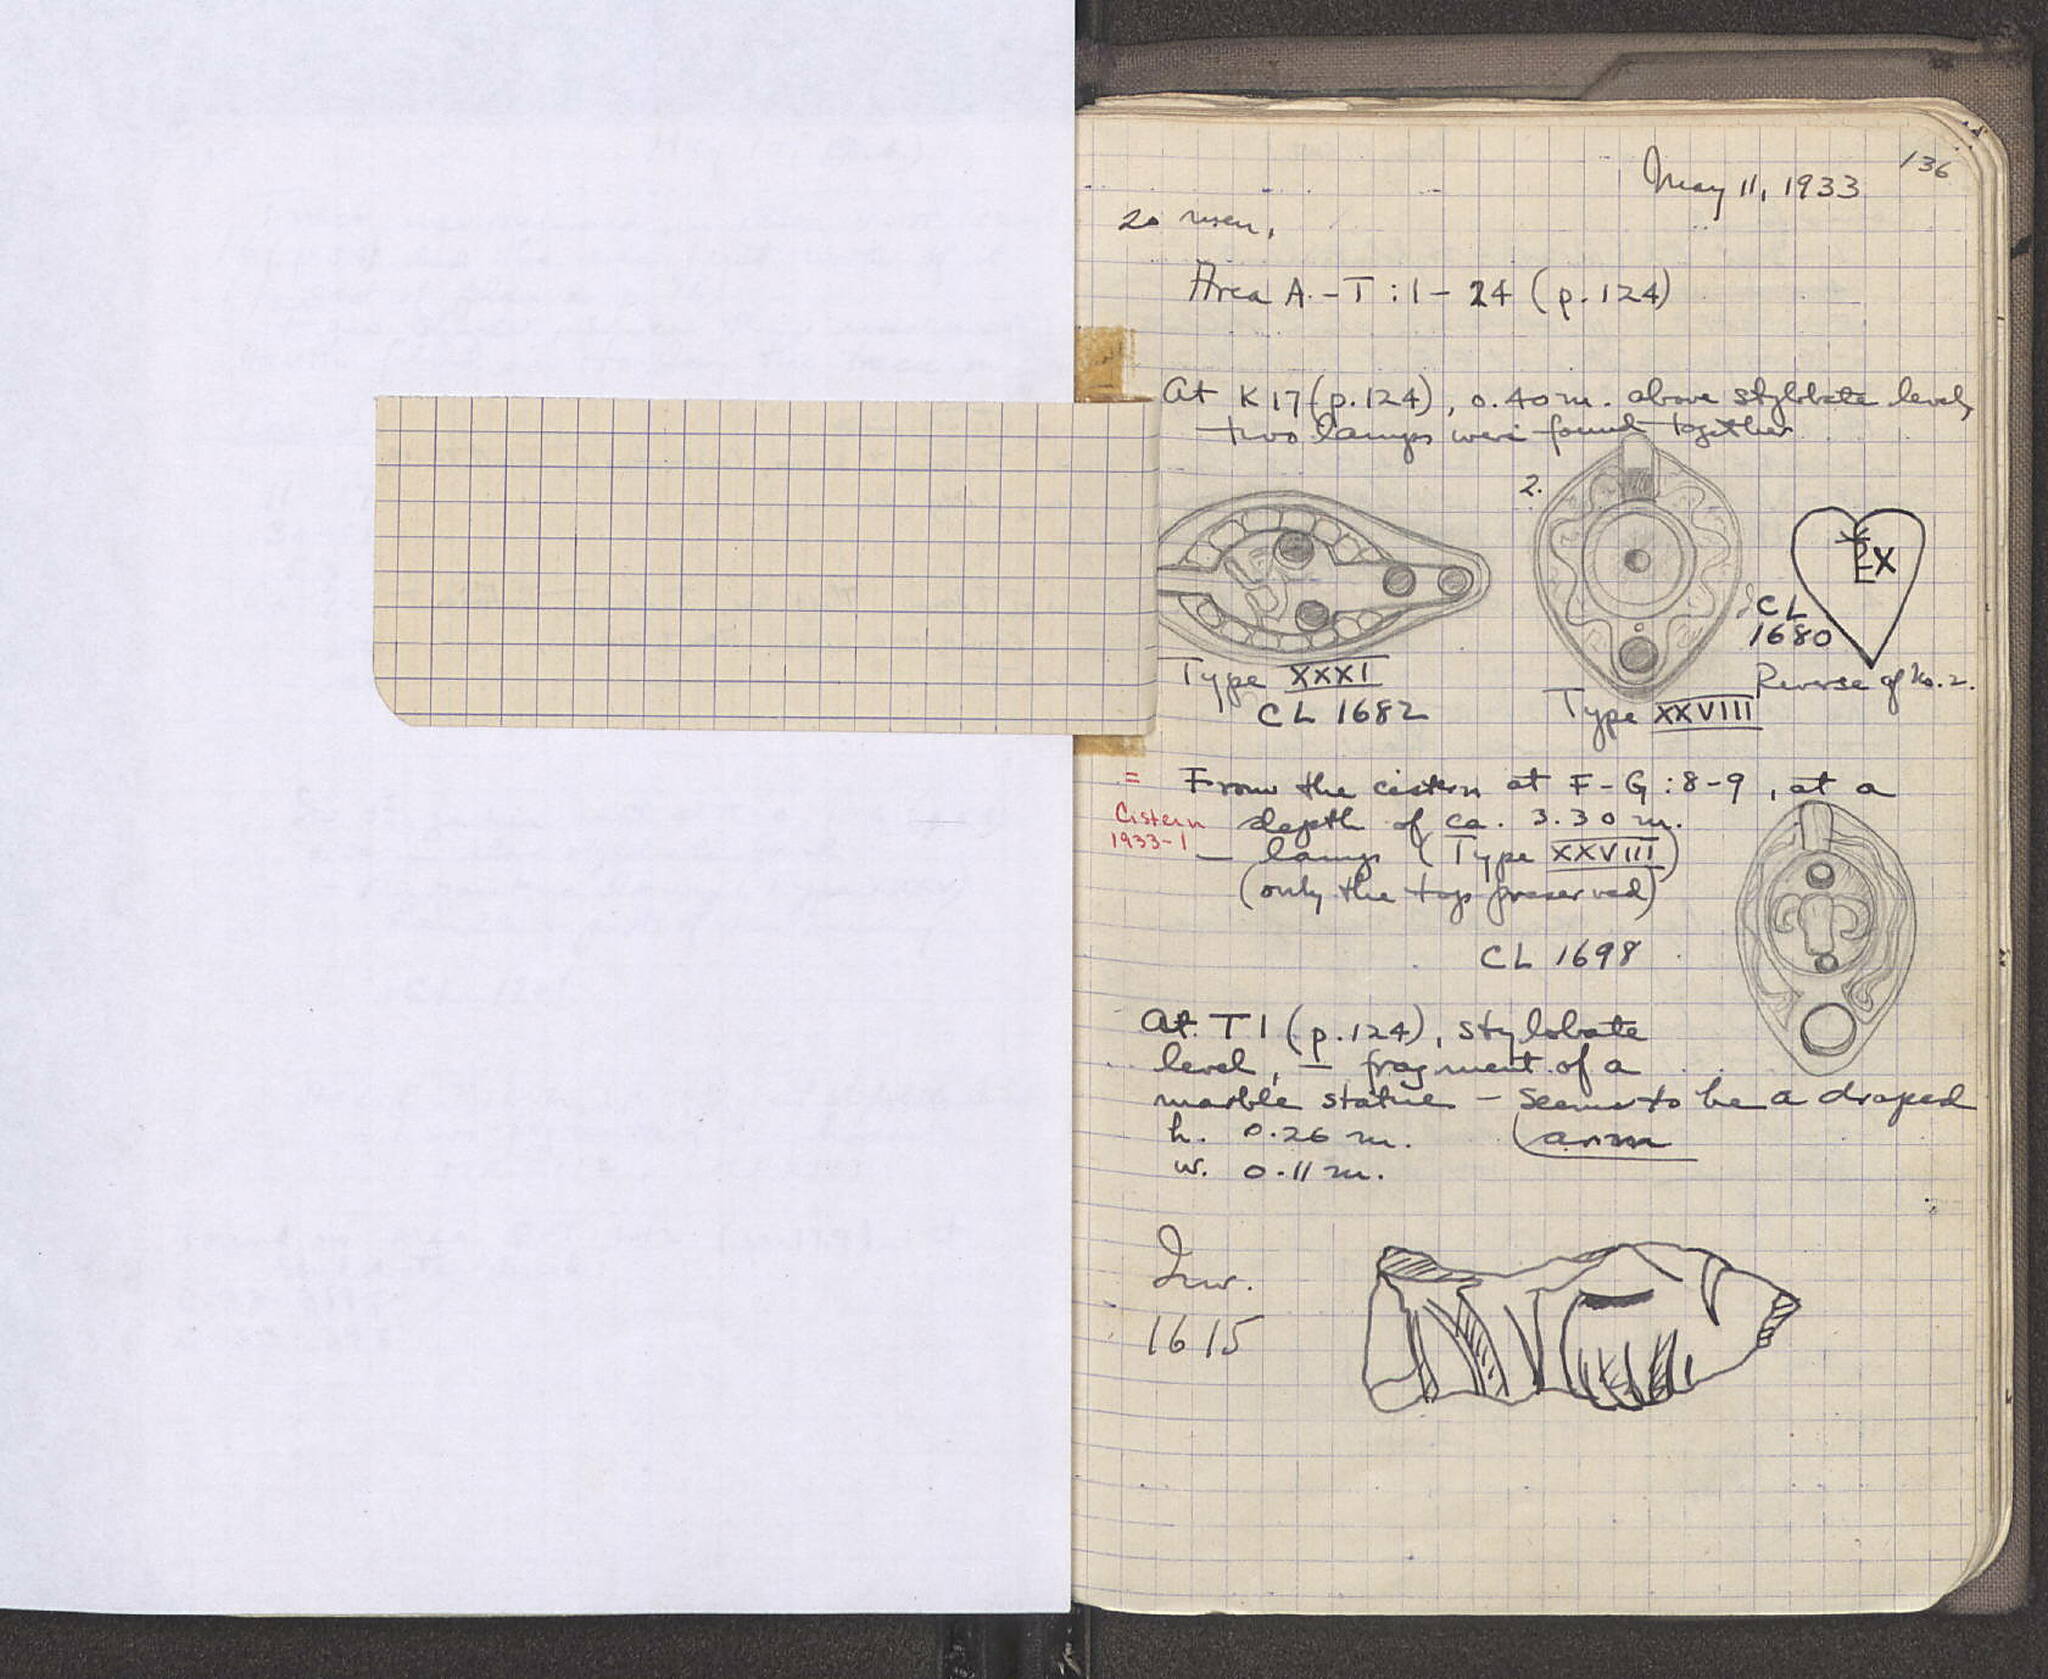 136
May 11, 1933
20 men.
Area A-T:1-24 (p.124)
At K17 (p.124), 0.40 m. above stylobate level,
two lamps were found together
2.
CL
1680
Reverse of No. 2.
Type XXXI
CL 1682
Type XXVIII
= From the cistern at F-G:8-9, at a
Cistern
1933-1
depth of ca. 3.30 m.
— lamp (Type XXVIII)
(only the top preserved)
CL 1698
At T1 (p.124), stylobate
level, — fragment of a
marble statue — seems to be a draped
(arm
h. 0.26 m.
w. 0.11 m.
Inv.
1615